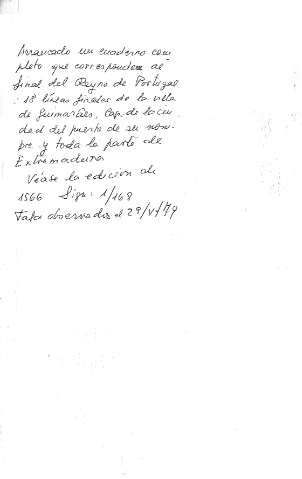 Arrancado un cuaderno com
pleto que corresponde al
final del Reyno de Portugal
: 18 líneas finales de la villa
de Guimarães, Cap. de la ciu
dad del puerto de su nom-
bre y toda la parte de
Extremadura
Véase la edición de
1566 Sign: 1/168
Falta observada el 29/V/79